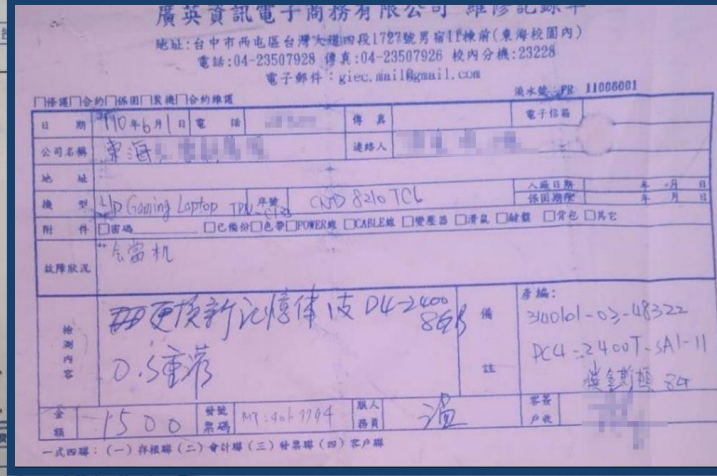 廣英資訊電子商務有限公司 維修記錄單
地址:台中市西屯區台灣大道四段1727號男宿11棟前(東海校園內)
電話:04-23507928 傳真:04-23507926 校內分機:23228
電子郵件:giec.mail@gmail.com
流水號:PR 11006001
□修護□合約□保固□裝機□合約維護
日 期 110年6月1日 電 話 傳 真 電子信箱
公司名稱 東海 連絡人
地 址
機 型 HP Gaming Laptop TPN- 序號 CND 8210 TCL 入廠日期 年 月 日
保固期限 年 月 日
附 件 □密碼 □已備份□色帶□POWER線 □CABLE線 □變壓器 □滑鼠 □鍵盤 □背包 □其它
故障狀況 會當机
檢測內容 更換新記憶体 D4-2400 8GB
O.S重灌
備註 產編:
3140101-03-48322
PC4-2400T-SA1-11
金額 1500 發票號碼 服務人員 客戶簽收
一式四聯:(一)存根聯(二)會計聯(三)發票聯(四)客戶聯